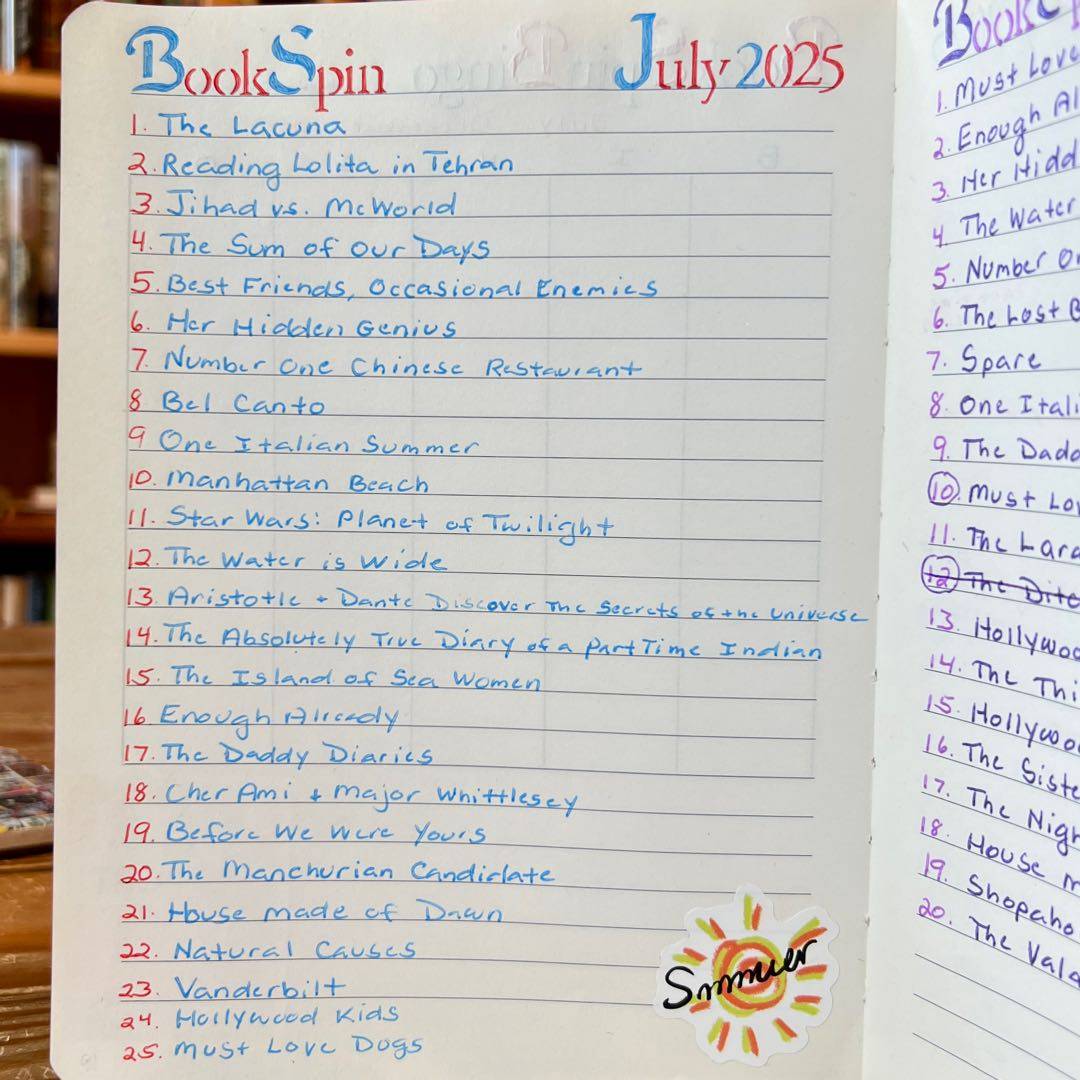 BookSpin July 2025
1. The Lacuna
2. Reading Lolita in Tehran
3. Jihad vs. McWorld
4. The Sum of Our Days
5. Best Friends, Occasional Enemies
6. Her Hidden Genius
7. Number One Chinese Restaurant
8 Bel Canto
9 One Italian Summer
10. Manhattan Beach
11. Star Wars: Planet of Twilight
12. The Water is Wide
13. Aristotle + Dante Discover The Secrets of the Universe
14. The Absolutely True Diary of a Part Time Indian
15. The Island of Sea Women
16 Enough Already
17. The Daddy Diaries
18. Cher Ami + Major Whittlesey
19. Before We Were Yours
20. The Manchurian Candidate
21. House Made of Dawn
22. Natural Causes
23. Vanderbilt
24. Hollywood Kids
25. Must Love Dogs
Summer
1. Must Love
2. Enough Al
3. Her Hidd
4. The Water
5. Number On
6. The Lost B
7. Spare
8. One Itali
9. The Dadd
10. Must Lo
11. The Lara
12 The Ditc
13. Hollywoo
14. The Thi
15. Hollywoo
16. The Siste
17. The Nigh
18. House M
19. Shopaho
20. The Vala